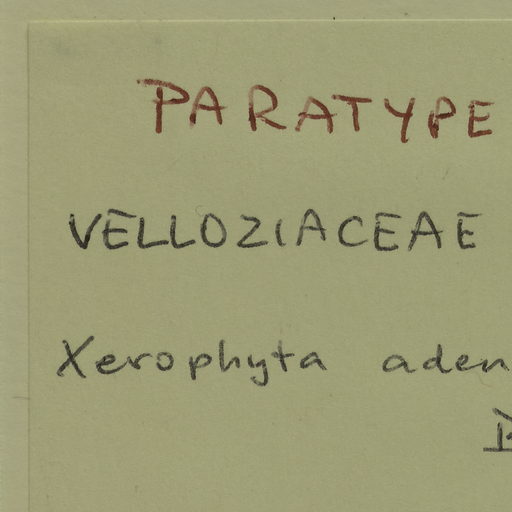 PARATYPE
VELLOZIACEAE
Xerophyta aden